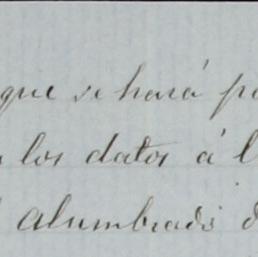 que se hará
los datos á
alumbrado